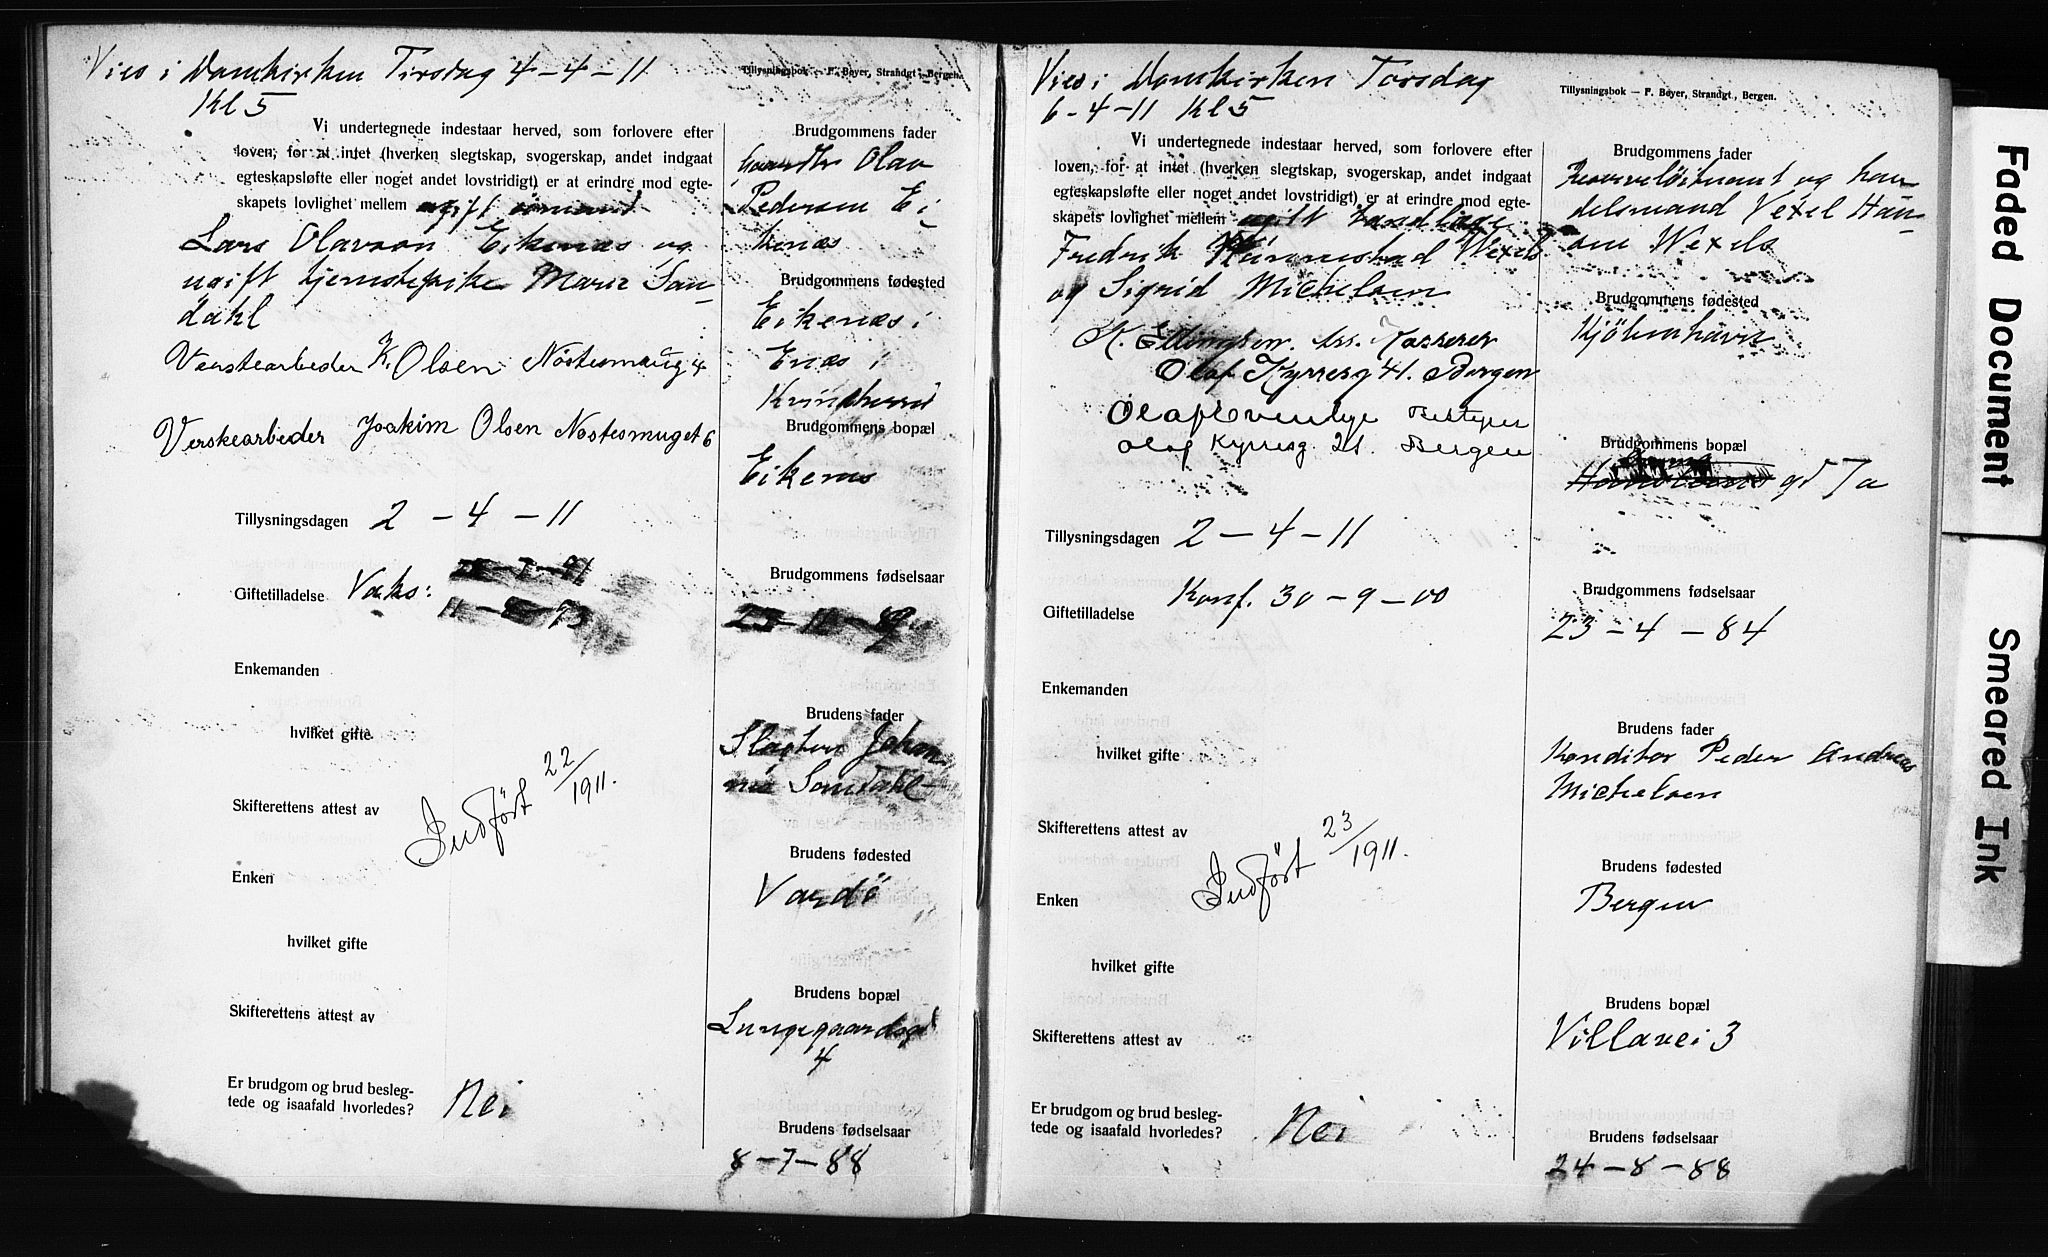 Vies i Domkirken Tirsdag 4-4-11
Kl 5
Tillysningsbok — F. Beyer, Strandgt., Bergen.
Vi undertegnede indestaar herved, som forlovere efter
loven, for at intet (hverken slegtskap, svogerskap, andet indgaat
egteskapsløfte eller noget andet lovstridigt) er at erindre mod egte-
skapets lovlighet mellem ugift
Lars Olavson Eikenæs og
ugift tjenestepike Marie San-
dahl
Verstearbeder K. Olsen Nøstesmaug 4
Verskearbeder Joakim Olsen Nøstesmuget 6
Tillysningsdagen 2 - 4 - 11
Giftetilladelse Vaks:
Enkemanden
hvilket gifte
Skifterettens attest av
Indført 22/1911.
Enken
hvilket gifte
Skifterettens attest av
Er brudgom og brud besleg-
tede og isaafald hvorledes? Nei
Brudgommens fader
Olav
Pedersen Ei-
kenæs
Brudgommens fødested
Eikenæs i
Enæs i
Kvindherred
Brudgommens bopæl
Eikenæs
Brudgommens fødselsaar
Brudens fader
Slagter Johan-
nes Sandahl
Brudens fødested
Vardö
Brudens bopæl
Lungegaardsgt
4
Brudens fødselsaar
8-7-88
Vies i Domkirken Torsdag
6-4-11 Kl 5
Tillysningsbok — F. Beyer, Strandgt., Bergen.
Vi undertegnede indestaar herved, som forlovere efter
loven, for at intet (hverken slegtskap, svogerskap, andet indgaat
egteskapsløfte eller noget andet lovstridigt) er at erindre mod egte-
skapets lovlighet mellem ugift tandlæge
Fredrik Wexels
og Sigrid Michelsen
K. Ellingsen. Ass. Kasserer
Olaf Kyrresg 41. Bergen
Olaf
Olaf Kyrresg. 21. Bergen
Tillysningsdagen 2 - 4 - 11
Giftetilladelse Konf. 30 - 9 - 00
Enkemanden
hvilket gifte
Skifterettens attest av
Indført 23/1911.
Enken
hvilket gifte
Skifterettens attest av
Er brudgom og brud besleg-
tede og isaafald hvorledes? Nei
Brudgommens fader
og han-
delsmand Vexel Han-
sen Wexels
Brudgommens fødested
Kjöbenhavn
Brudgommens bopæl
gt 7a
Brudgommens fødselsaar
23 - 4 - 84
Brudens fader
Konditor Peder Andreas
Michelsen
Brudens fødested
Bergen
Brudens bopæl
Villavei 3
Brudens fødselsaar
24 - 8 - 88
Faded Document
Smeared Ink